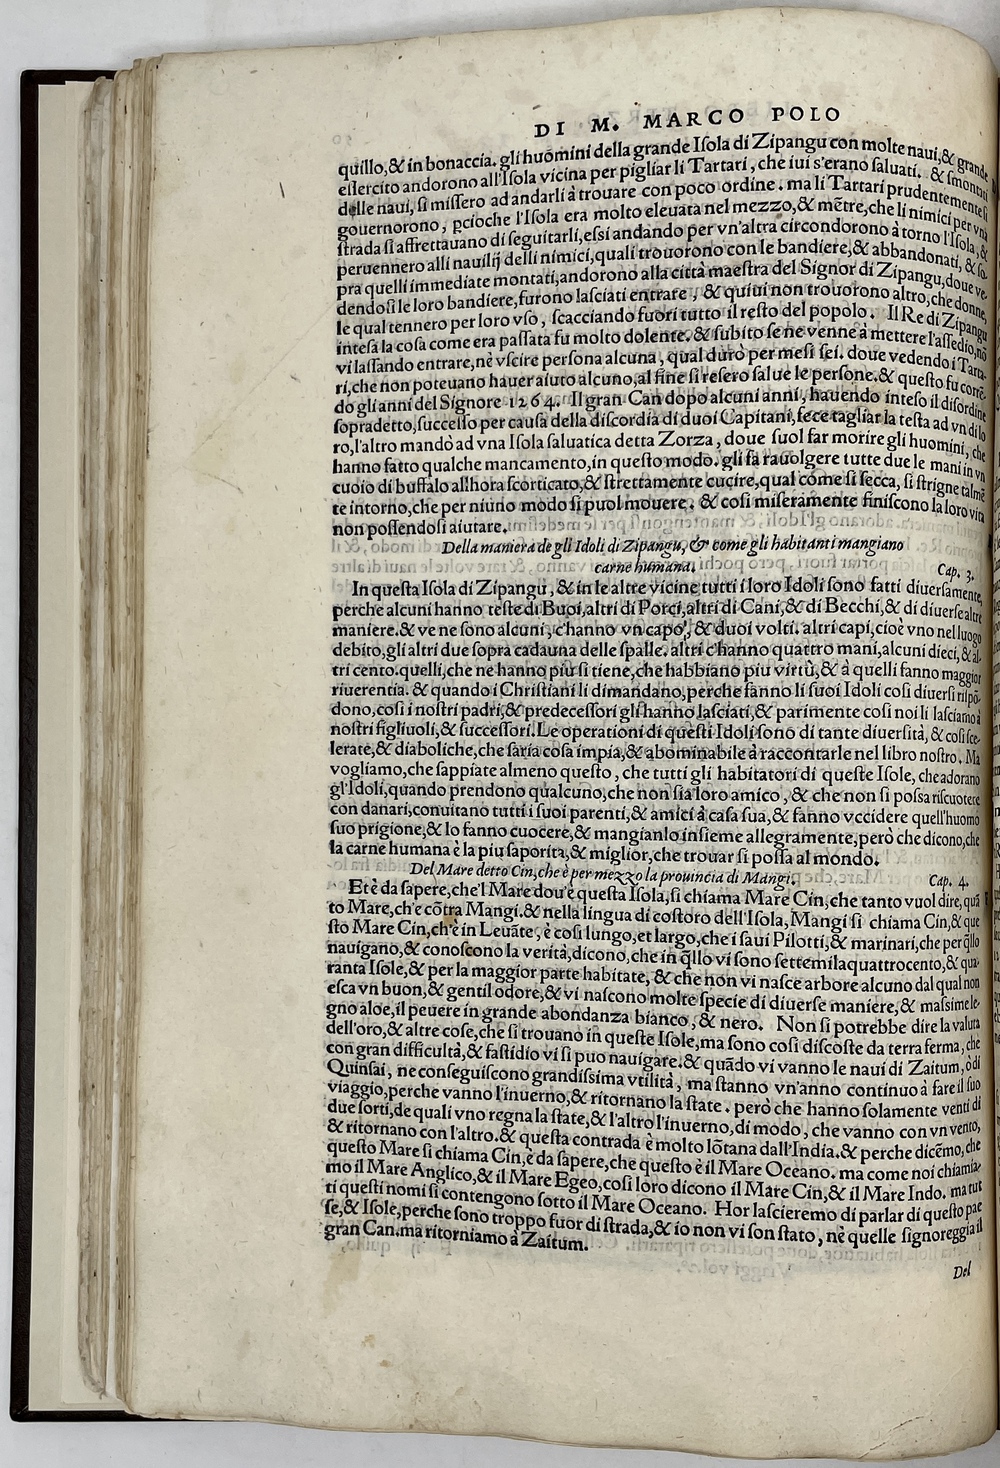 DI M. MARCO POLO
quillo,& in bonaccia. gli huomini della grande Iſola di Zipangu con molte naui,& grande
eſſercito andorono all'Iſola vicina per pigliar li Tartari, che iui s'erano ſaluati. & ſmontati
delle naui, ſi miſſero ad andarli à trouare con poco ordine. ma li Tartari prudentemente ſi
gouernorono, ꝑcioche l'Iſola era molto eleuata nel mezzo,& mẽtre,che li nimici per vna
ſtrada ſi affrettauano di ſeguitarli,eſsi andando per vn'altra circondorono à torno l'Iſola, &
peruennero alli nauilij delli nimici,quali trouorono con le bandiere,& abbandonati, & ſo-
pra quelli immediate montati,andorono alla città maeſtra del Signor di Zipangu,doue ve-
dendoſi le loro bandiere,furono laſciati entrare, & quiui non trouorono altro,che donne,
le qual tennero per loro vſo, ſcacciando fuori tutto il reſto del popolo. Il Re di Zipangu
inteſa la coſa come era paſſata fu molto dolente. & ſubito ſe ne venne à mettere l'aſſedio,nõ
vi laſſando entrare,nè vſcire perſona alcuna, qual durò per meſi ſei. doue vedendo i Tarta-
ri,che non poteuano hauer aiuto alcuno,al fine ſi reſero ſalue le perſone.& queſto fu corrẽ-
do gli anni del Signore 1264. Il gran Can dopo alcuni anni, hauendo inteſo il diſordine
ſopradetto,ſucceſſo per cauſa della diſcordia di duoi Capitani, fece tagliar la teſta ad vn di lo
ro,l'altro mandò ad vna Iſola ſaluatica detta Zorza, doue ſuol far morire gli huomini, che
hanno fatto qualche mancamento,in queſto modo. gli fa rauolgere tutte due le mani in vn
cuoio di buffalo allhora ſcorticato,& ſtrettamente cucire,qual come ſi ſecca, ſi ſtrigne talmẽ
te intorno,che per niuno modo ſi puol mouere. & coſi miſeramente finiſcono la loro vita
non poſſendoſi aiutare.
Della maniera de gli Idoli di Zipangu, & come gli habitanti mangiano
carne humana. Cap. 3.
In queſta Iſola di Zipangu, & in le altre vicine tutti i loro Idoli ſono fatti diuerſamente,
perche alcuni hanno teſte di Buoi,altri di Porci,altri di Cani,& di Becchi,& di diuerſe altre
maniere.& ve ne ſono alcuni, c'hanno vn capo, & duoi volti. altri capi,cioè vno nel luogo
debito,gli altri due ſopra cadauna delle ſpalle. altri c'hanno quattro mani,alcuni dieci, & al-
tri cento.quelli,che ne hanno più ſi tiene,che habbiano piu virtù,& à quelli fanno maggior
riuerentia. & quando i Chriſtiani li dimandano,perche fanno li ſuoi Idoli coſi diuerſi riſpõ-
dono,coſi i noſtri padri,& predeceſſori gli hanno laſciati,& parimente coſi noi li laſciamo à
noſtri figliuoli,& ſucceſſori.Le operationi di queſti Idoli ſono di tante diuerſità, & coſi ſce-
lerate,& diaboliche,che ſaria coſa impia,& abominabile à raccontarle nel libro noſtro. Ma
vogliamo,che ſappiate almeno queſto, che tutti gli habitatori di queſte Iſole, che adorano
gl'Idoli,quando prendono qualcuno,che non ſia loro amico, & che non ſi poſſa riſcuotere
con danari,conuitano tutti i ſuoi parenti,& amici à caſa ſua,& fanno vccidere quell'huomo
ſuo prigione,& lo fanno cuocere,& mangianlo inſieme allegramente,però che dicono,che
la carne humana è la piu ſaporita,& miglior,che trouar ſi poſſa al mondo.
Del Mare detto Cin,che è per mezzo la prouincia di Mangi. Cap. 4.
Et è da ſapere,che'l Mare dou'è queſta Iſola,ſi chiama Mare Cin,che tanto vuol dire,quã
to Mare,ch'e cõtra Mangi.& nella lingua di coſtoro dell'Iſola, Mangi ſi chiama Cin,& que
ſto Mare Cin,ch'è in Leuãte, è coſi lungo,et largo,che i ſaui Pilotti,& marinari,che per q̃llo
nauigano,& conoſcono la verità,dicono,che in q̃llo vi ſono ſettemilaquattrocento,& qua-
ranta Iſole,& per la maggior parte habitate, & che non vi naſce arbore alcuno dal qual non
eſca vn buon,& gentil odore,& vi naſcono molte ſpecie di diuerſe maniere,& maſsime le-
gno aloe,il peuere in grande abondanza bianco, & nero. Non ſi potrebbe dire la valuta
dell'oro,& altre coſe,che ſi trouano in queſte Iſole,ma ſono coſi diſcoſte da terra ferma, che
con gran difficultà,& faſtidio vi ſi puo nauigare.& quãdo vi vanno le naui di Zaitum,ò di
Quinſai, ne conſeguiſcono grandiſsima vtilità, ma ſtanno vn'anno continuo à fare il ſuo
viaggio,perche vanno l'inuerno,& ritornano la ſtate. però che hanno ſolamente venti di
due ſorti,de quali vno regna la ſtate,& l'altro l'inuerno,di modo, che vanno con vn vento,
& ritornano con l'altro.& queſta contrada è molto lõtana dall'India.& perche dicẽmo,che
queſto Mare ſi chiama Cin,è da ſapere,che queſto è il Mare Oceano. ma come noi chiamia-
mo il Mare Anglico,& il Mare Egeo,coſi loro dicono il Mare Cin,& il Mare Indo. ma tut
ti queſti nomi ſi contengono ſotto il Mare Oceano. Hor laſcieremo di parlar di queſto pae
ſe,& Iſole,perche ſono troppo fuor di ſtrada,& io non vi ſon ſtato, nè quelle ſignoreggia il
gran Can.ma ritorniamo à Zaitum.
Del